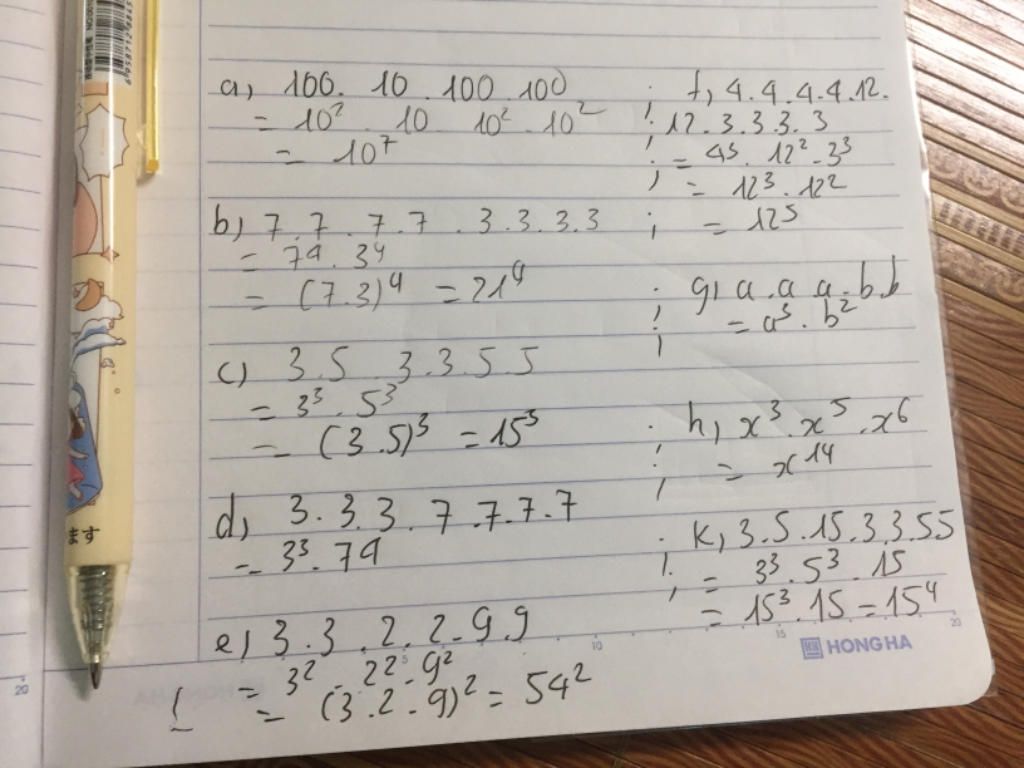 a) 100. 10 . 100 . 100
= 10² . 10 10² . 10²
= 10⁷
b) 7.7 . 7.7 . 3.3.3.3
= 7⁴ . 3⁴
= (7.3)⁴ = 21⁴
c) 3.5 . 3.3.5.5
= 3³ . 5³
= (3.5)³ = 15³
d) 3.3.3.7.7.7.7
= 3³. 7⁴
e) 3.3 . 2.2.9.9
= 3² . 2² . 9²
= (3.2.9)² = 54²
f) 4.4.4.4.12.
12.3.3.3.3
= 4³ . 12² . 3³
= 12³ . 12²
= 12⁵
g) a.a.a.b.b
= a³ . b²
h) x³. x⁵ . x⁶
= x¹⁴
k) 3.5.15.3.3.5.5
= 3³ . 5³ . 15
= 15³ . 15 = 15⁴
5 10 15 20
HONG HA
20
ます